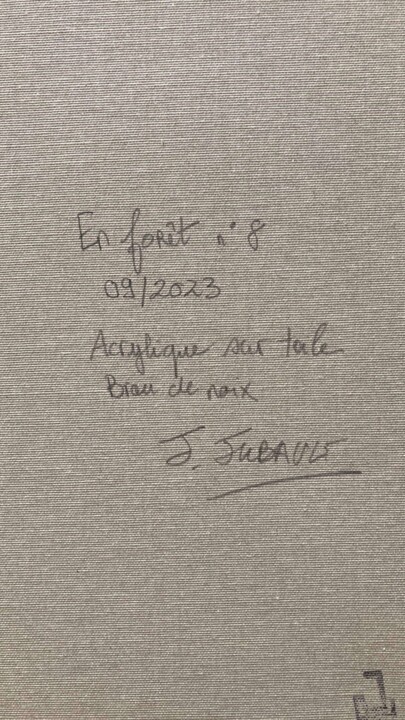 En forêt n°8
09/2023
Acrylique sur toile
Brou de noix
J. JUBAULT